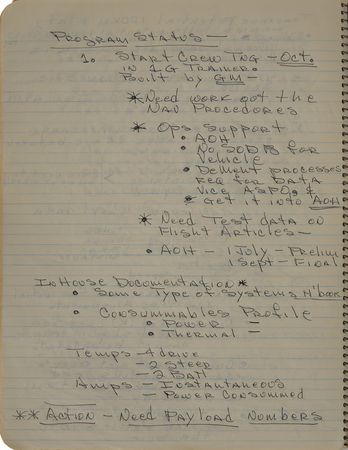 Program Status —
1. Start Crew Tng — Oct.
in 1 G Trainer.
Built by GM —
* Need work out the
Nav Procedures
* Ops Support
• AOH
• No SODB for
Vehicle
• Dement processes
Req for Data
Vice ASPO, &
Get it into AOH
* Need Test data on
Flight Articles —
• AOH — 1 July — Prelim
1 Sept — Final
In House Documentation *
• Same Type of Systems H'book
• Consummables Profile
• Power —
• Thermal —
Temps — 4 drive
— 2 Steer
— 2 Batt
Amps — Instantaneous
— Power Consummed
** Action — Need Payload Numbers